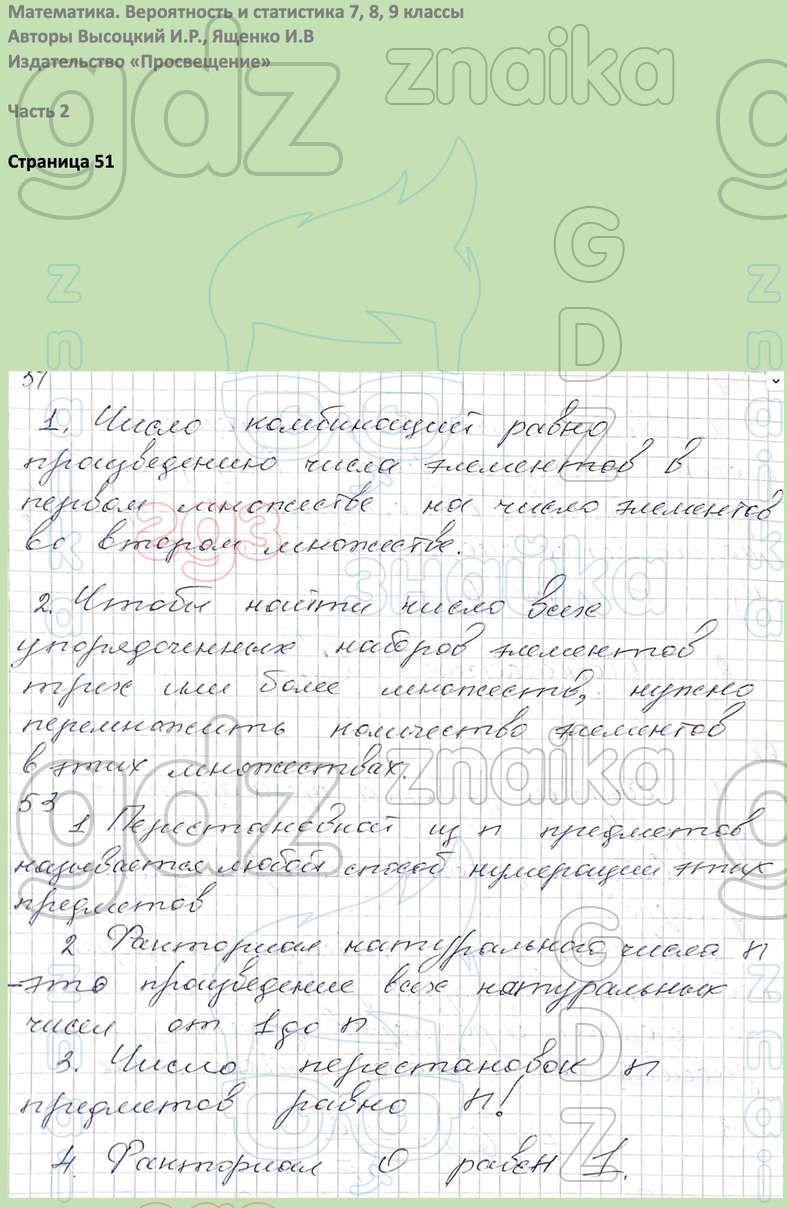 Математика. Вероятность и статистика 7, 8, 9 классы
Авторы Высоцкий И.Р., Ященко И.В
Издательство «Просвещение»
Часть 2
Страница 51
gdz znaika
51
1. Число комбинаций равно
произведению числа элементов в
первом множестве на число элементов
во втором множестве.
гдз знайка
2. Чтобы найти число всех
упорядоченных наборов элементов
трех или более множеств, нужно
перемножить количество элементов
в этих множествах.
gdz znaika
53
1 Перестановкой из n предметов
называется любой способ нумерации этих
предметов
2 Факториал натурального числа n
-это произведение всех натуральных
чисел от 1 до n
3. Число перестановок n
предметов равно n!
4. Факториал 0 равен 1.